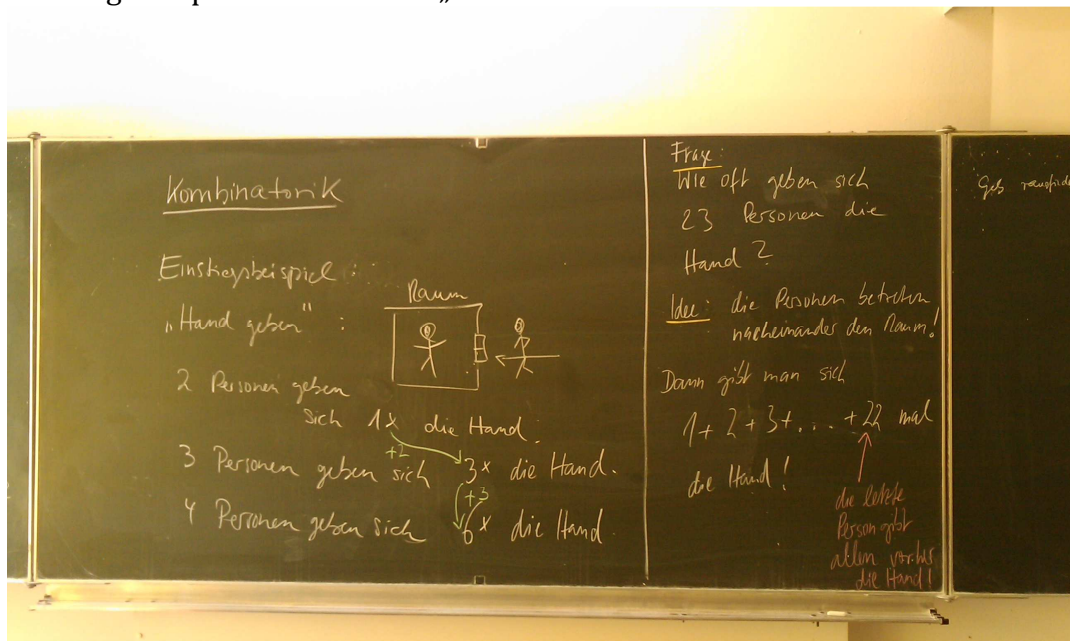 Kombinatorik
Einstiegsbeispiel:
„Hand geben“ :
Raum
2 Personen geben
sich 1x die Hand.
+2
3 Personen geben sich 3x die Hand.
+3
4 Personen geben sich 6x die Hand.
Frage:
Wie oft geben sich
23 Personen die
Hand?
Idee: die Personen betreten
nacheinander den Raum!
Dann gibt man sich
1+2+3+...+22 mal
die Hand!
die letzte
Person gibt
allen vorher
die Hand!